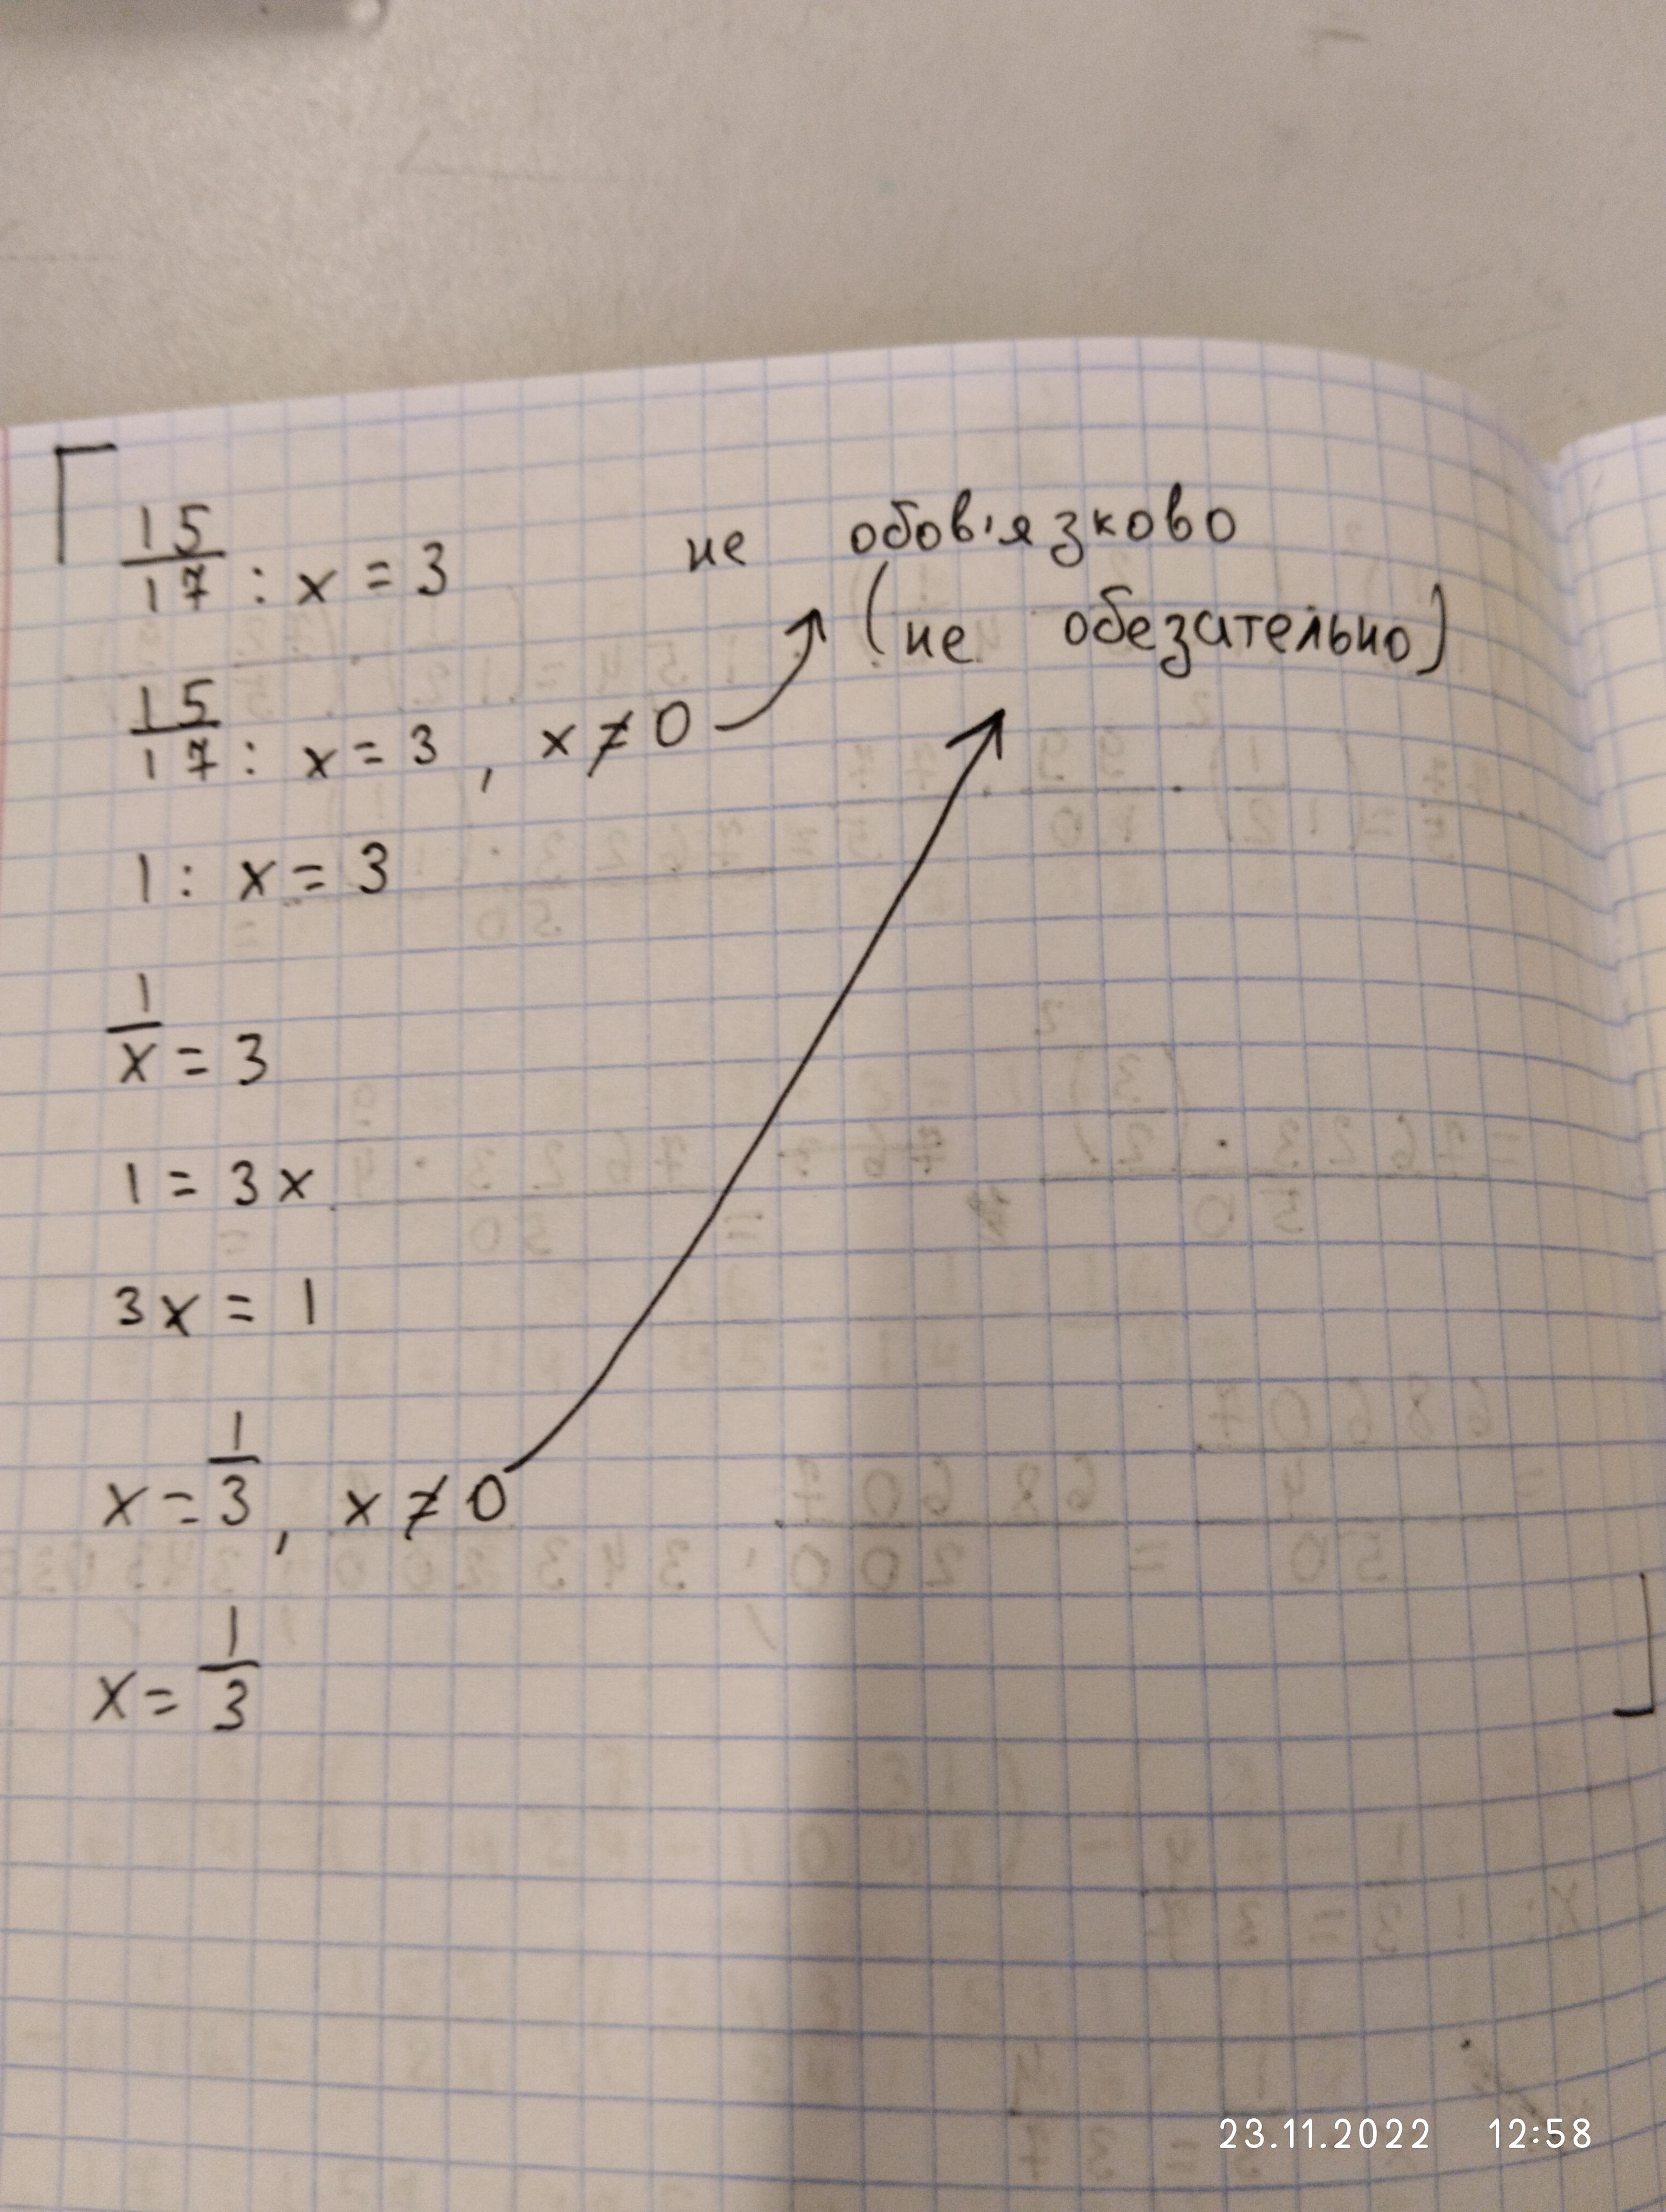 15/17 : x = 3
не обов'язково
(не обезательно)
15/17 : x = 3 , x ≠ 0
1 : x = 3
1/x = 3
1 = 3x
3x = 1
x = 1/3 , x ≠ 0
x = 1/3
23.11.2022 12:58